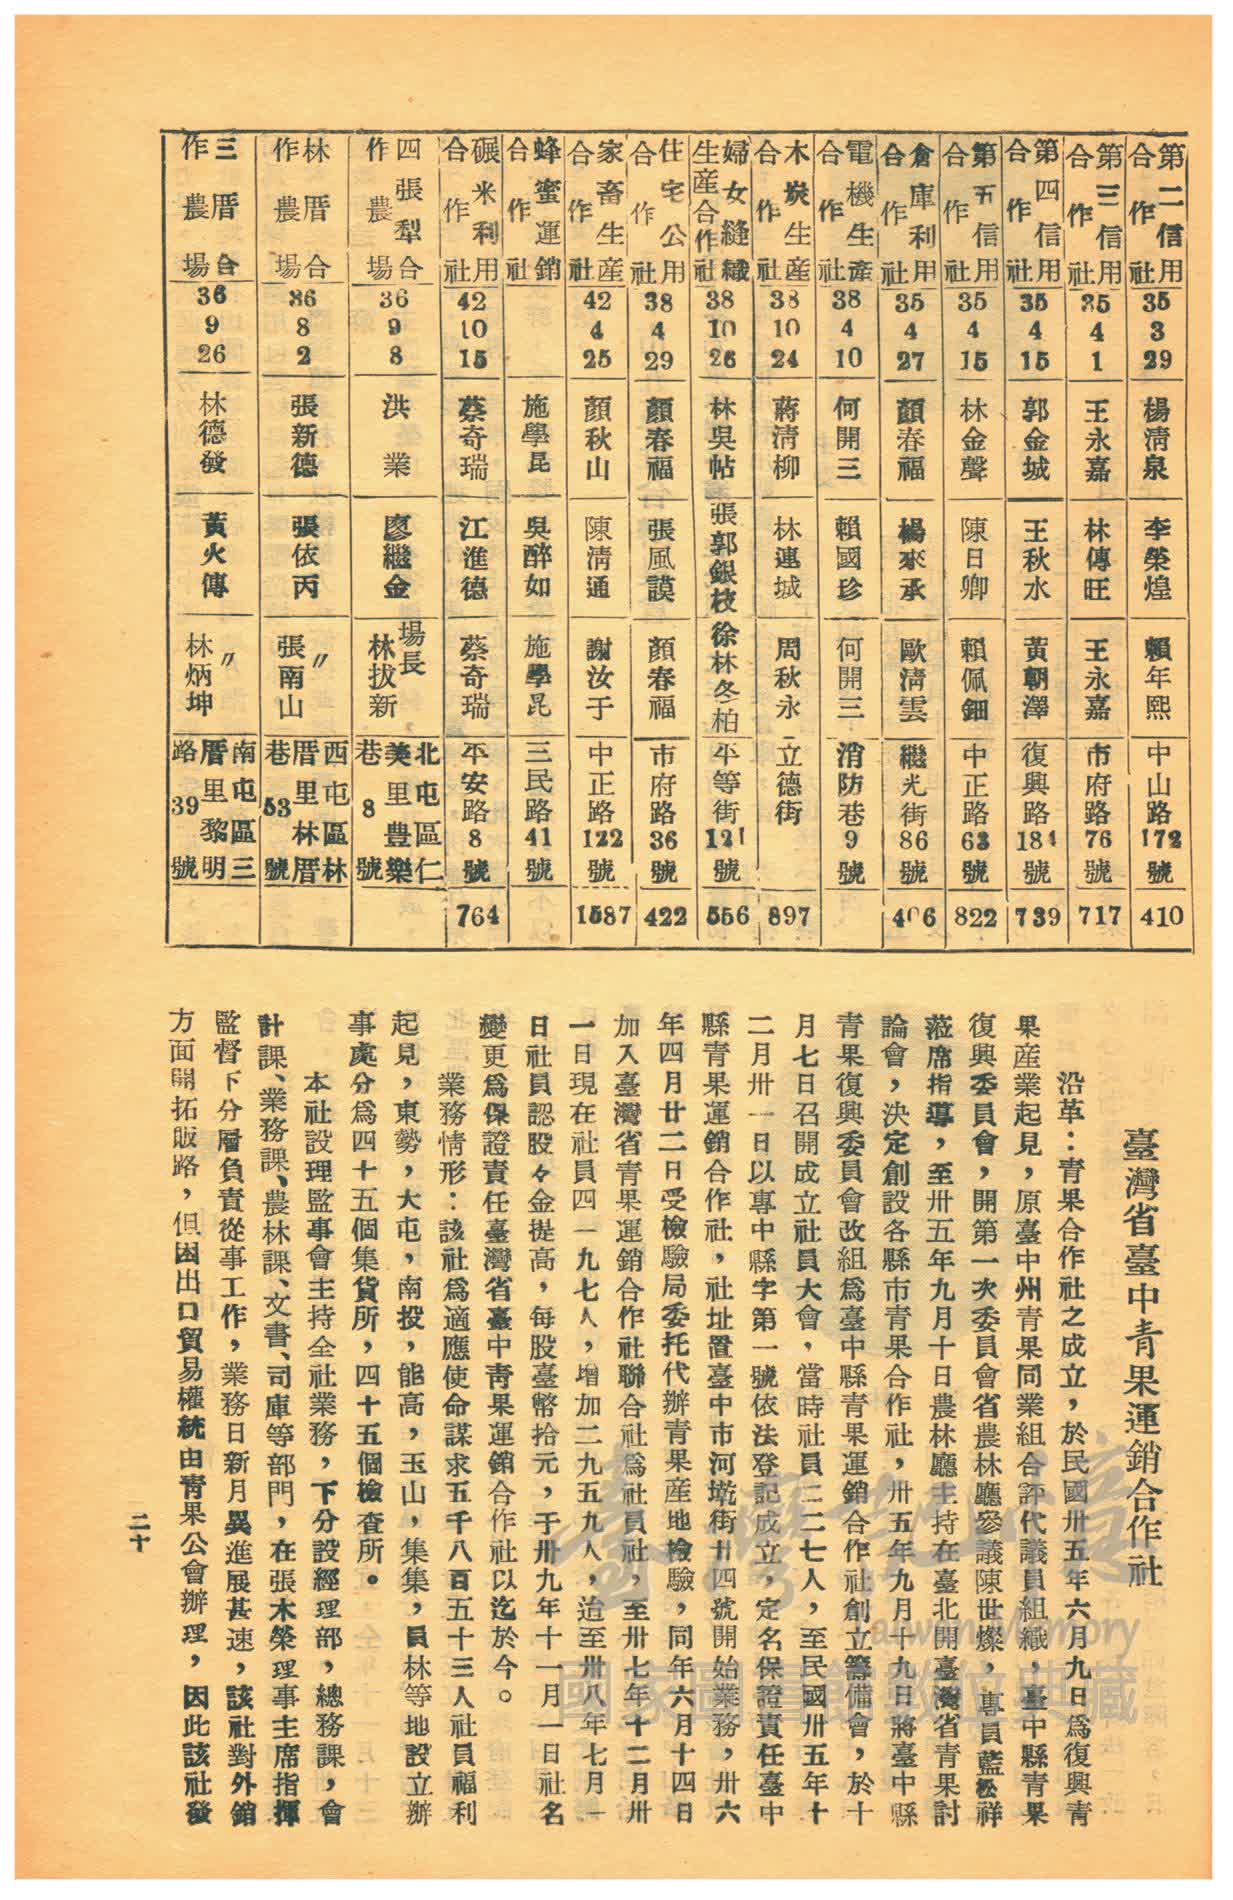 第二信用合作社 35 3 29 楊淸泉 李榮煌 賴年熙 中山路172號 410
第三信用合作社 35 4 1 王永嘉 林傳旺 王永嘉 市府路76號 717
第四信用合作社 35 4 15 郭金城 王秋水 黃朝澤 復興路184號 739
第五信用合作社 35 4 15 林金聲 陳日卿 賴佩鈿 中正路63號 822
倉庫利用合作社 35 4 27 顏春福 楊來承 歐淸雲 繼光街86號 406
電機生產合作社 38 4 10 何開三 賴國珍 何開三 消防巷9號
木炭生產合作社 38 10 24 蔣淸柳 林連城 周秋永 立德街 897
婦女縫織生產合作社 38 10 26 林吳帖 張郭銀枝 徐林冬柏 平等街121號 556
住宅公用合作社 38 4 29 顏春福 張風謨 顏春福 市府路36號 422
家畜生產合作社 42 4 25 顏秋山 陳淸通 謝汝于 中正路122號 1587
蜂蜜運銷合作社 施學昆 吳醉如 施學昆 三民路41號
碾米利用合作社 42 10 15 蔡奇瑞 江進德 蔡奇瑞 平安路8號 764
四張犁合作農場 36 9 8 洪業 廖繼金 場長林拔新 北屯區仁美里豊樂巷8號
林厝合作農場 36 8 2 張新德 張依丙 〃張南山 西屯區林厝里林厝巷53號
三厝合作農場 36 9 26 林德發 黃火傳 〃林炳坤 南屯區三厝里黎明路39號
臺灣省臺中靑果運銷合作社
沿革：靑果合作社之成立，於民國卅五年六月九日爲復興靑
果産業起見，原臺中州靑果同業組合評代議員組織，臺中縣靑果
復興委員會，開第一次委員會省農林廳參議陳世燦，專員藍松祥
蒞席指導，至卅五年九月十日農林廳主持在臺北開臺灣省靑果討
論會，決定創設各縣市靑果合作社，卅五年九月十九日將臺中縣
靑果復興委員會改組爲臺中縣靑果運銷合作社創立籌備會，於十
月七日召開成立社員大會，當時社員二二七人，至民國卅五年十
二月卅一日以專中縣字第一號依法登記成立，定名保證責任臺中
縣靑果運銷合作社，社址置臺中市河墘街廿四號開始業務，卅六
年四月廿二日受檢驗局委托代辦靑果産地檢驗，同年六月十四日
加入臺灣省靑果運銷合作社聯合社爲社員社，至卅七年十二月卅
一日現在社員四一九七人，增加二九五九人，迨至卅八年七月一
日社員認股々金提高，每股臺幣拾元，于卅九年十一月一日社名
變更爲保證責任臺灣省臺中靑果運銷合作社以迄於今。
業務情形：該社爲適應使命謀求五千八百五十三人社員福利
起見，東勢，大屯，南投，能高，玉山，集集，員林等地設立辦
事處分爲四十五個集貨所，四十五個檢查所。
本社設理監事會主持全社業務，下分設經理部，總務課，會
計課、業務課、農林課、文書、司庫等部門，在張木榮理事主席指揮
監督下分層負責從事工作，業務日新月異進展甚速，該社對外銷
方面開拓販路，但因出口貿易權統由靑果公會辦理，因此該社發
二十
臺灣記憶
Taiwan Memory
國家圖書館數位典藏